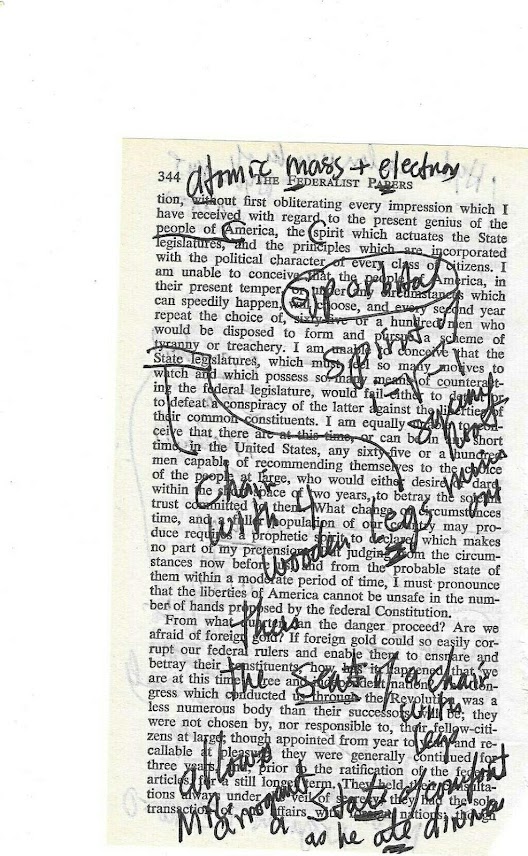 atomic mass + electron
344 THE FEDERALIST PAPERS
tion, without first obliterating every impression which I
have received with regard to the present genius of the
people of America, the spirit which actuates the State
legislatures, and the principles which are incorporated
with the political character of every class of citizens. I
am unable to conceive that the people of America, in
their present temper, or under any circumstances which
can speedily happen, will choose, and every second year
up orbital
repeat the choice of, sixty-five or a hundred men who
would be disposed to form and pursue a scheme of
tyranny or treachery. I am unable to conceive that the
State legislatures, which must feel so many motives to
watch and which possess so many means of counteract-
ing the federal legislature, would fail either to detect or
to defeat a conspiracy of the latter against the liberties of
their common constituents. I am equally
ceive that there are at this time, or can be short
time, in the United States, any sixty-five or a hundred
men capable of recommending themselves to the choice
of the people at large, who would either desire or dare
within the space of two years, to betray the solemn
trust committed to them. What change circumstances
time, and a fuller population of our may pro-
duce requires a prophetic spirit to declare, which makes
no part of my pretensions. judging from the circum-
stances now before us, and from the probable state of
them within a moderate period of time, I must pronounce
that the liberties of America cannot be unsafe in the num-
ber of hands proposed by the federal Constitution.
chair
with 4
wooden legs
minus
one
From what quarter can the danger proceed? Are we
afraid of foreign gold? If foreign gold could so easily cor-
rupt our federal rulers and enable them to ensnare and
betray their constituents, how has it happened that we
are at this time a free and independent nation? The Con-
gress which conducted us through the Revolution was a
less numerous body than their successors will be; they
were not chosen by, nor responsible to, their fellow-citi-
zens at large; though appointed from year to year, and re-
callable at pleasure, they were generally continued for
three years, prior to the ratification of the federal
articles, for a still longer term. They held their consulta-
tions always under the veil of secrecy; they had the sole
transaction of our affairs with nations; though
the seat of a chair
with
legs
allows
a state
as he ate dinner